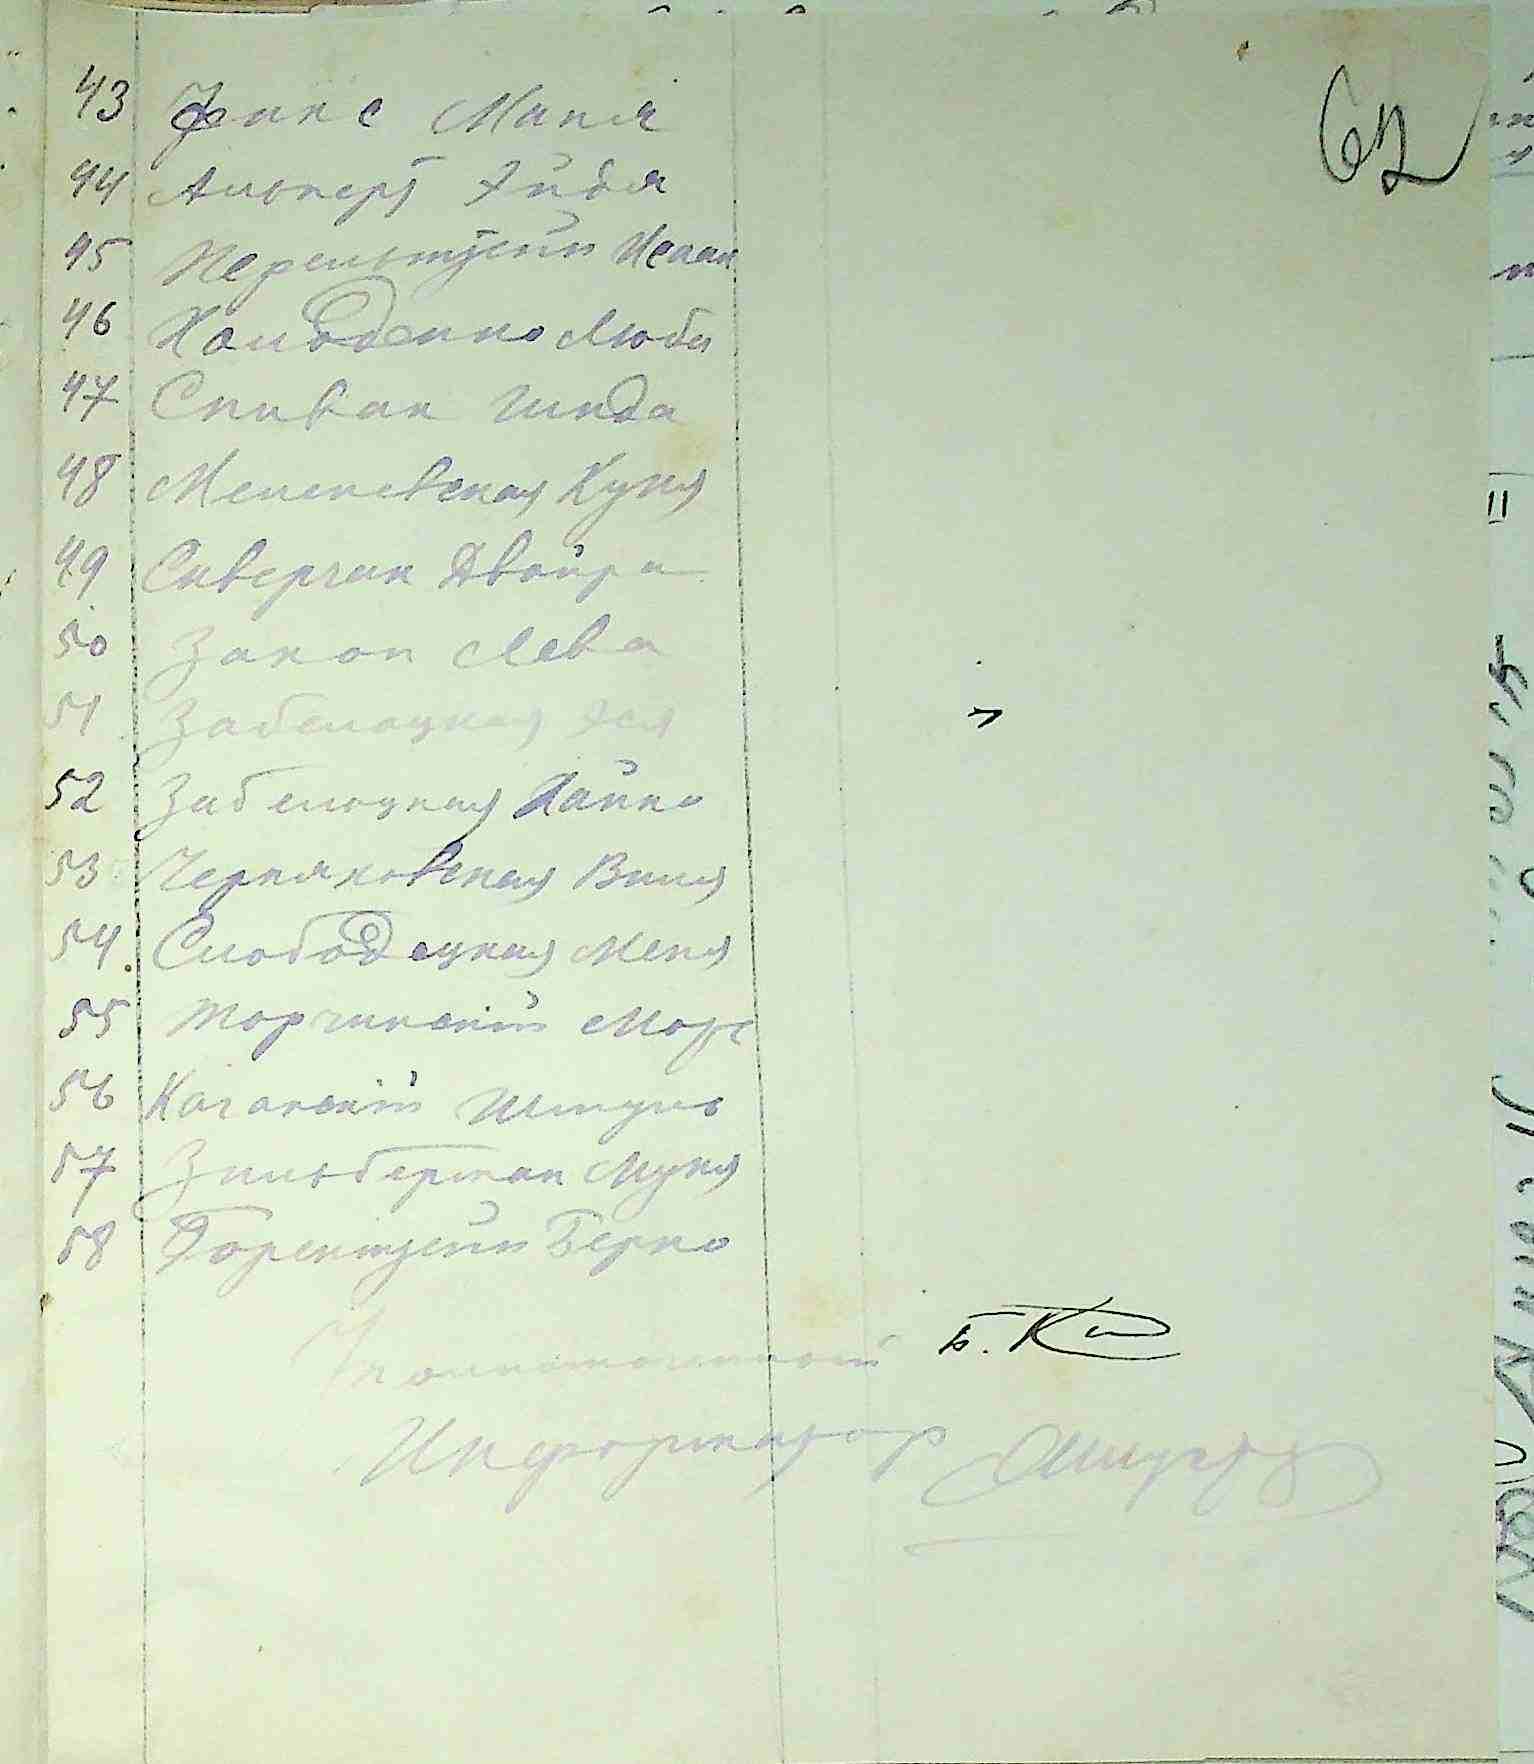 62
43 Фикс Маня
44 Альперт Хайдя
45 Перельштейн Исаак
46 Холоденко Люба
47 Спивак Гинда
48 Меленевская Куня
49 Сиверчан Двойра
50 Закон Лева
51 Заблоцкая Эся
52 Заблоцкая Хайка
53 Черняковская Виня
54 Слободецкая Меня
55 Торчинский Море
56 Каганский Шмуль
57 Зильберман Муня
58 Горенштейн Берко
Уполномоченный Б. К
Информатор